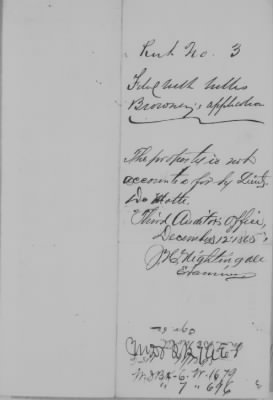 No. 3
Filed with Willis
Browning's application
The property is not
accounted for by Lieut.
De Motte.
Third Auditor's Office,
December 12' 1865;
Nightingale
Examiner
6. W. 1679
" 7 " 696